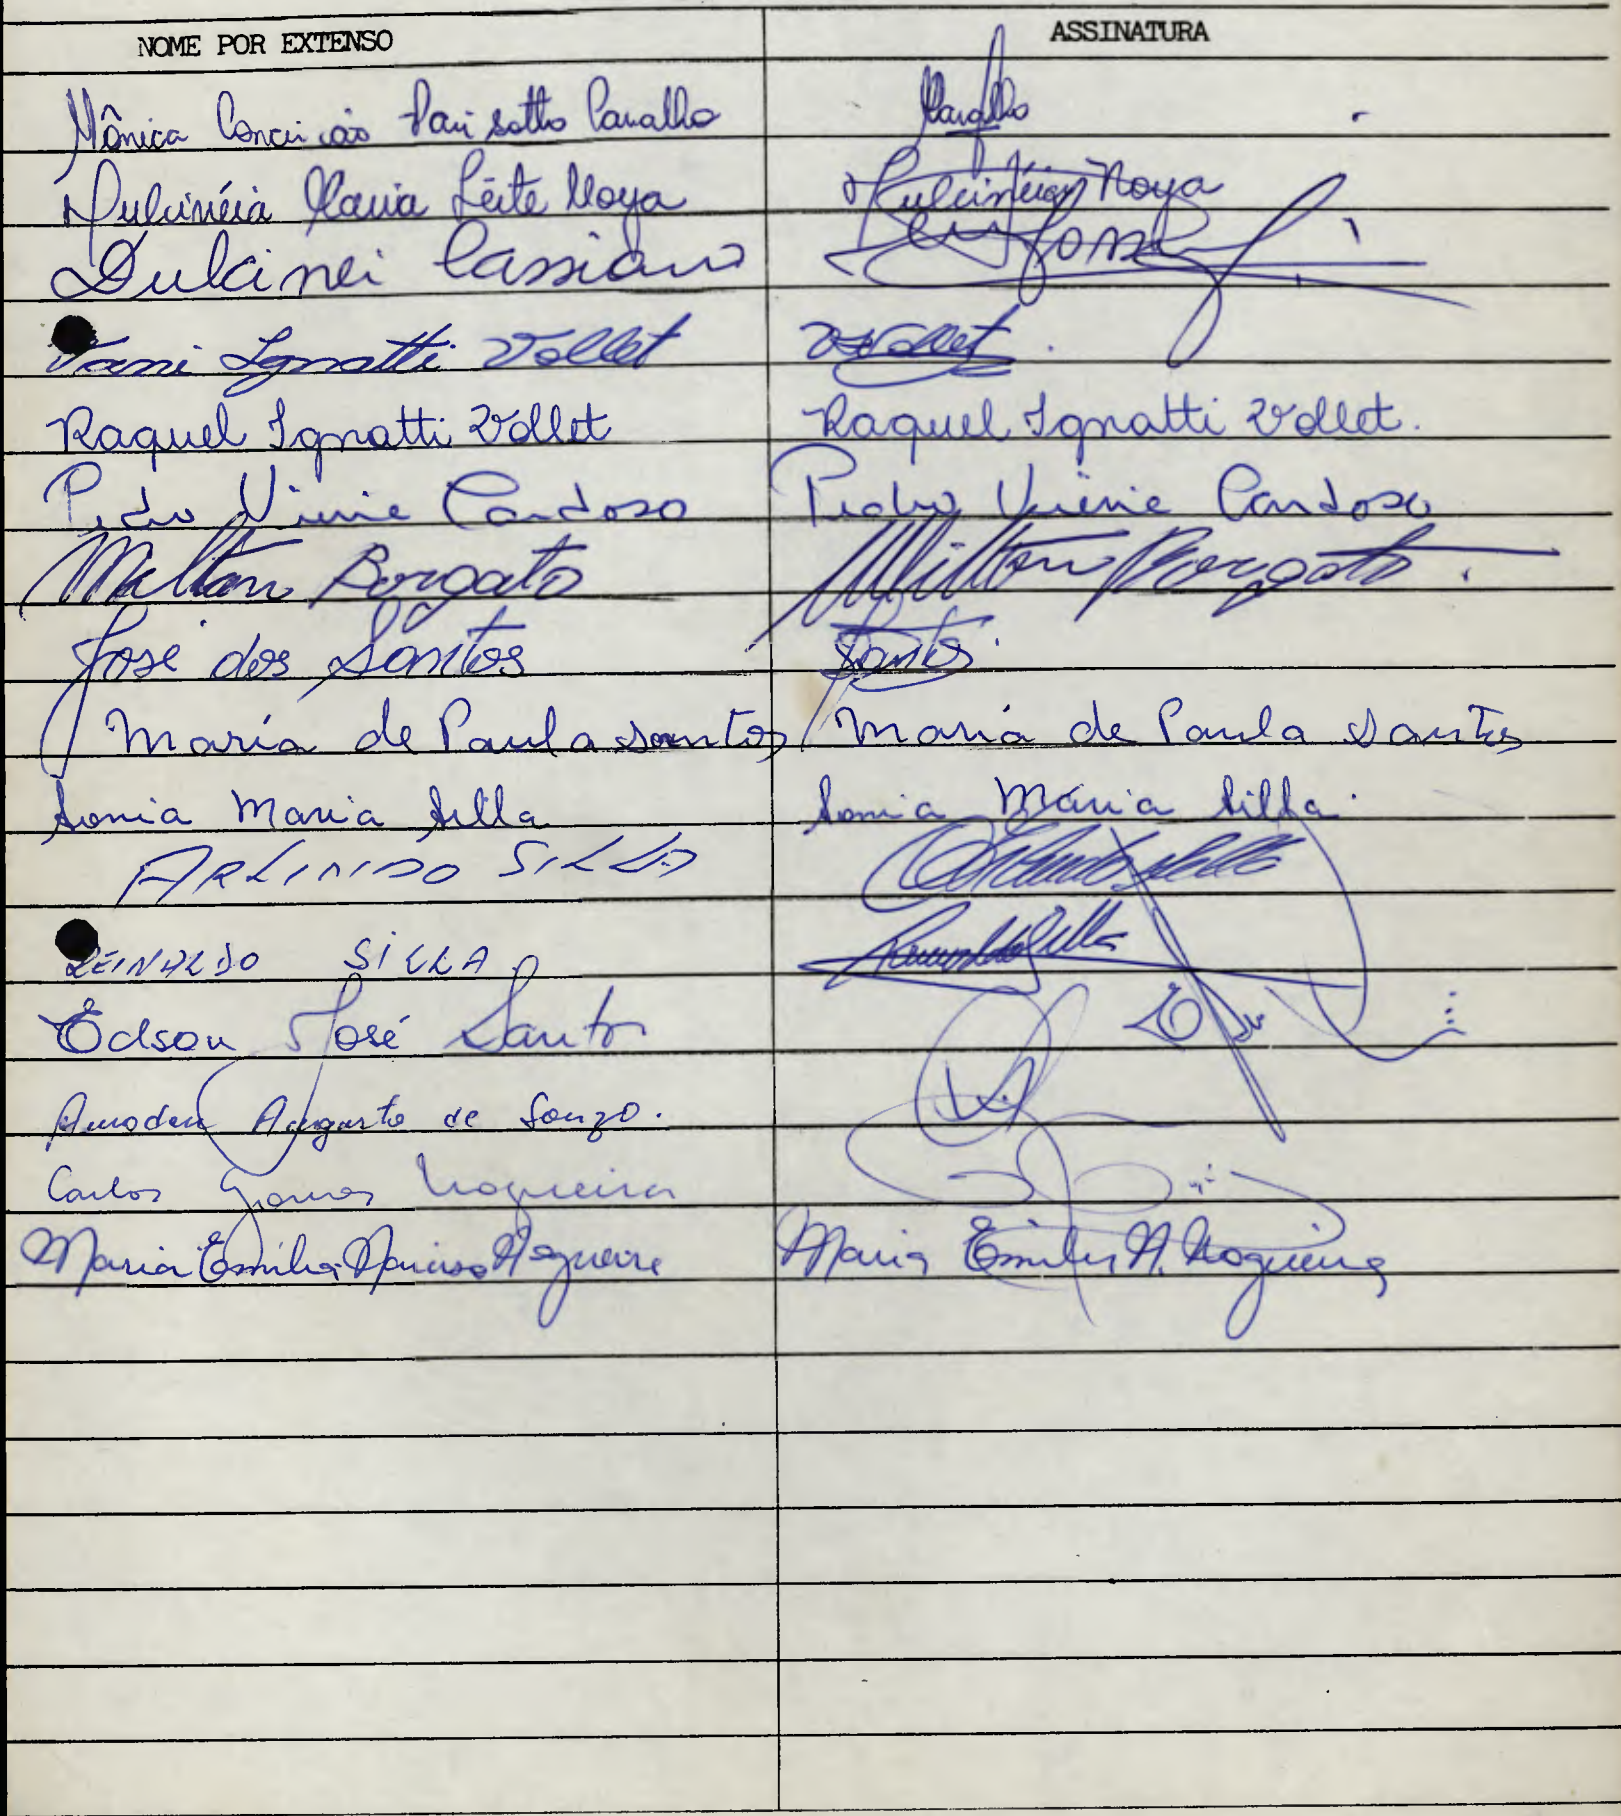 NOME POR EXTENSO ASSINATURA
Mônica Conceição Parisotto Carvalho Carvalho
Dulcinéia Maria Leite Moya Dulcinéia Moya
Dulcinei Cassiano
Vani Ignatti Vollet Vollet
Raquel Ignatti Vollet Raquel Ignatti Vollet.
Pedro Cardoso Pedro Cardoso
Milton Borgato Milton Borgato.
José dos Santos Santos
Maria de Paula Santos Maria de Paula Santos
Sonia Maria Silla Sonia Maria Silla.
ARLINDO SILLA Arlindo Silla
REINALDO SILLA Reinaldo Silla
Edson José Santos
Augusto de Souza.
Carlos Gomes Nogueira
Maria Emilia Narciso Nogueira Maria Emilia N. Nogueira